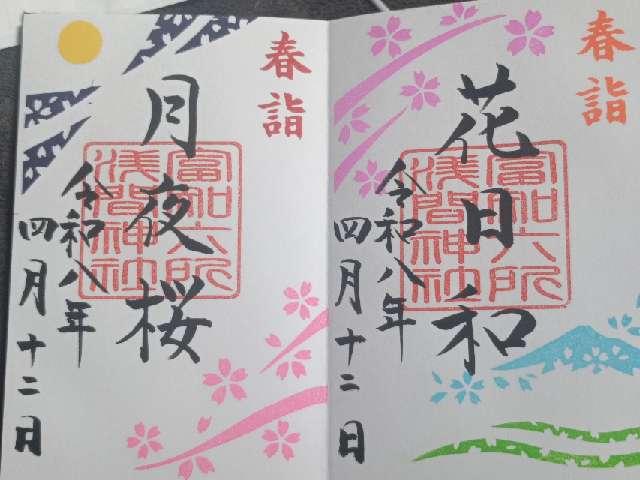 春詣
花日和
富知六所
浅間神社
令和八年
四月十二日
春詣
月夜桜
富知六所
浅間神社
令和八年
四月十二日